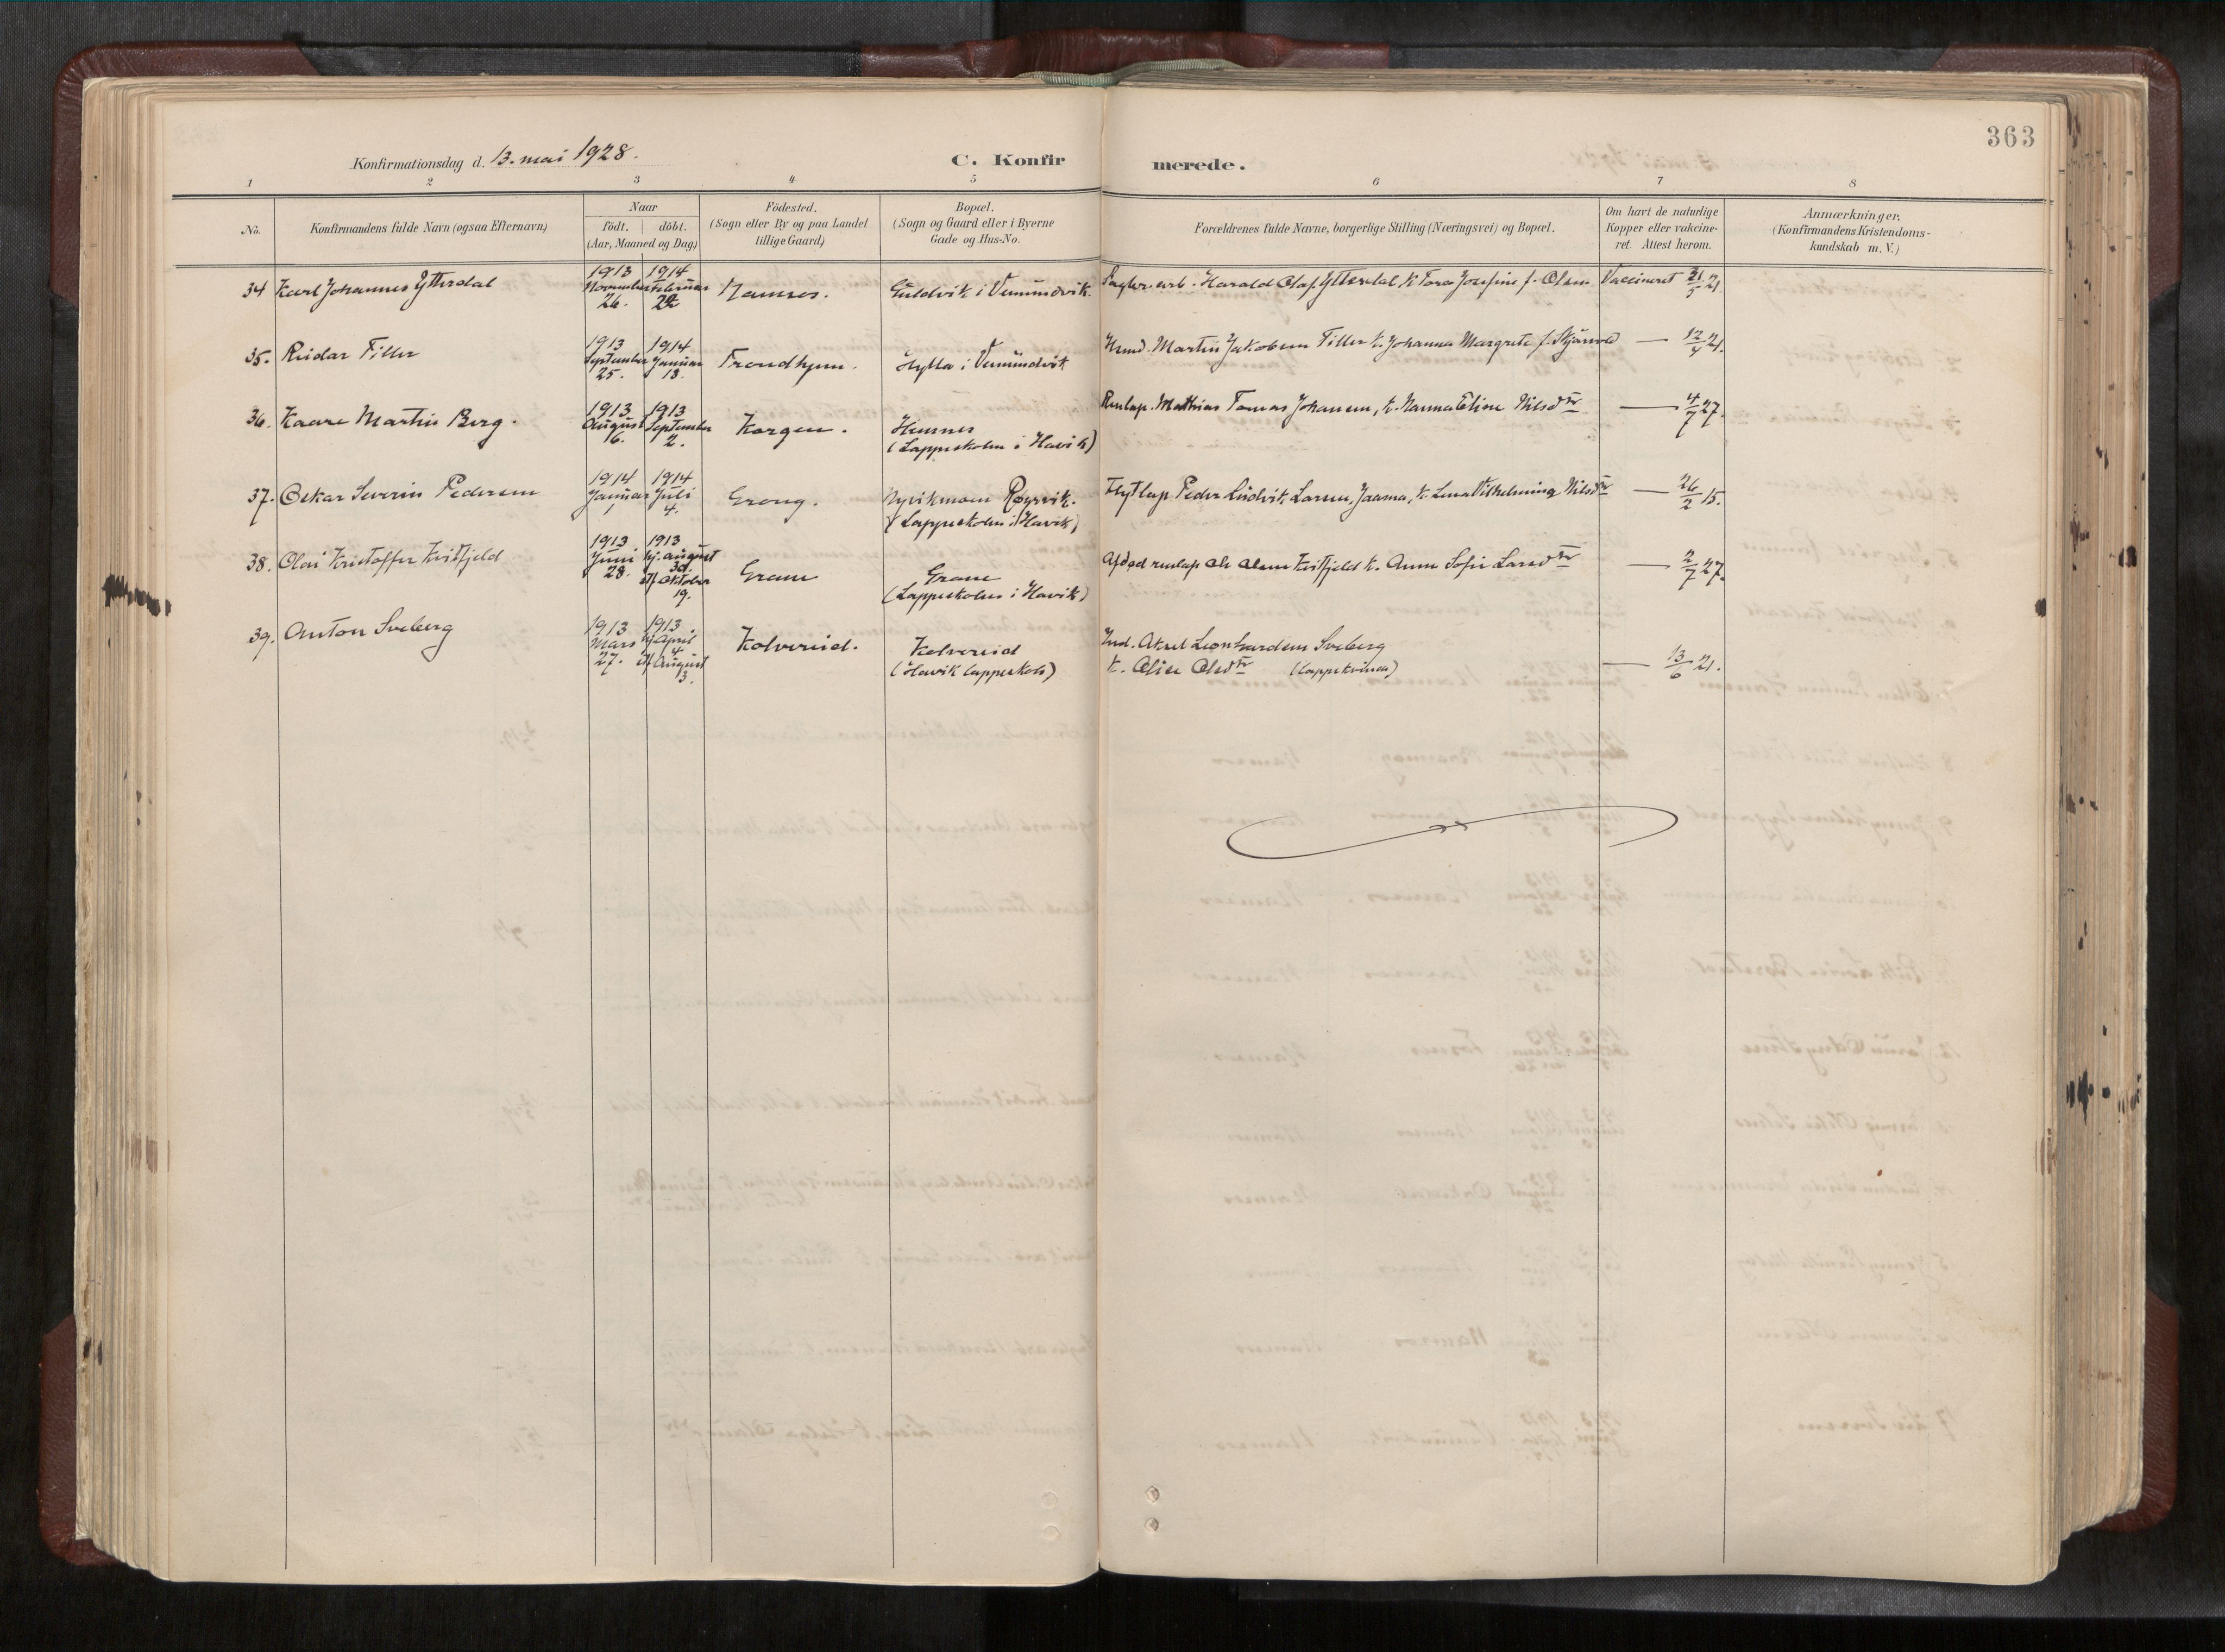 363
Konfirmationsdag d. 13. mai 1928.
C. Konfirmerede.
1 2 3 4 5 6 7 8
No.
Konfirmandens fulde Navn (ogsaa Efternavn)
Naar
födt. döbt.
(Aar, Maaned og Dag)
Födested.
(Sogn eller By og paa Landet
tillige Gaard)
Bopæl.
(Sogn og Gaard eller i Byerne
Gade og Hus-No.
Forældrenes fulde Navne, borgerlige Stilling (Næringsvei) og Bopæl.
Om havt de naturlige
Kopper eller vakcine-
ret. Attest herom.
Anmærkninger.
(Konfirmandens Kristendoms-
kundskab m. V.)
34 Karl Johannes Ytterdal
1913 November 26.
1914 Februar 22
Namsos.
Guldvik i Vemundvik.
Sagbr.arb. Harald Olaf Ytterdal k Tora Josefine f. Olsen
Vaccineret 31/5 21
35. Reidar Tiller
1913 September 25.
1914 Januar 18.
Trondhjem.
Hylla i Vemundvik
Martin Jakobsen Tiller k. Johanna Margrete f.
— 12/4 21.
36. Kaare Martin Berg.
1913 August 16.
1913 September 2.
Korgen.
Hemnes
(Lappeskolen i Havik)
Renlap. Mathias Tomas Johansen, k. Nanna Eline Nilsdtr
— 4/7 27.
37. Oskar Severin Pedersen
1914 Januar 1
1914 Juli 4.
Grong.
Røyrvik.
(Lappeskolen i Havik)
Flytlap Peder Ludvik Larsen, Jaama, k. Lena Vilhelmina Nilsdtr
— 26/2 15.
38. Olai Kristoffer Kvitfjeld
1913 Juni 28.
1913 hj. august 30. st/ Oktober 19.
Grane
Grane
(Lappeskolen i Havik)
Afdød renlap Ole Olsen Kvitfjeld k. Anna Sofie Larsdtr
— 2/7 27.
39. Anton Sveberg
1913 Mars 27.
1913. hj April 4 st/ August 3.
Kolvereid.
Kolvereid
(Havik lappeskole)
Ind. Aksel Leonhardsen Sveberg
k. Elise Olsdtr (Lappekvinde)
— 13/6 21.